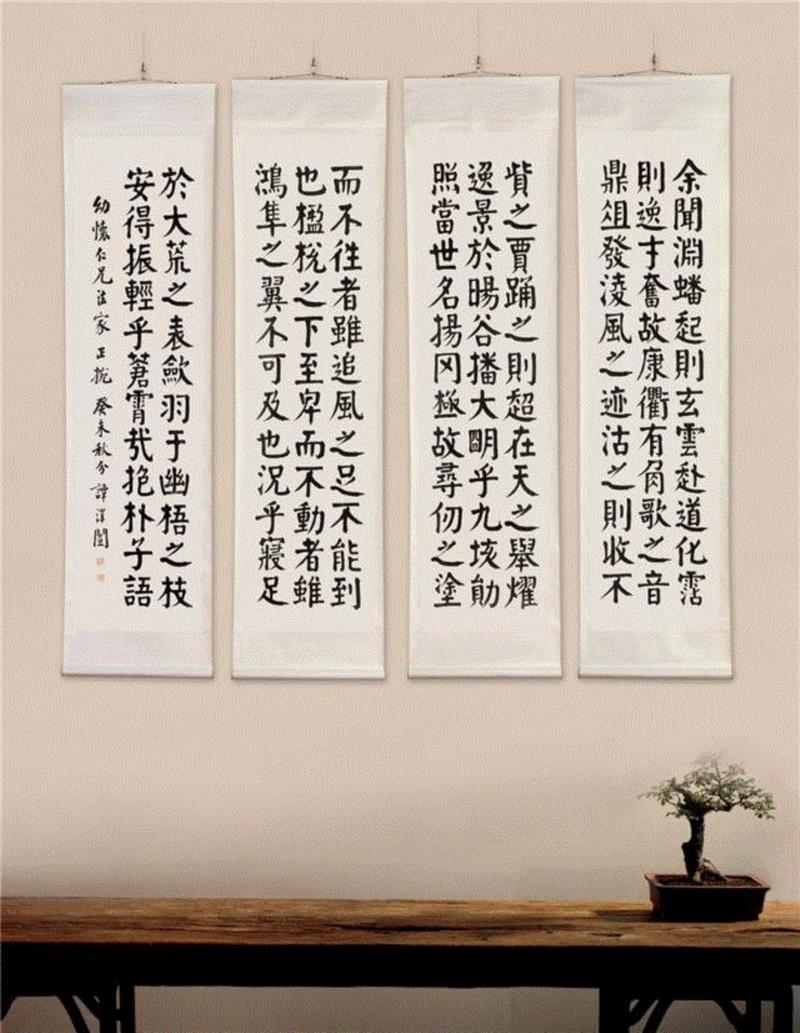 余聞淵蟠起則玄雲赴道化霑
則逸才奮故康衢有角歌之音
鼎俎發淩風之迹沽之則收不
貲之賈踊之則超在天之舉耀
逸景於暘谷播大明乎九垓勛
照當世名揚罔極故尋仞之塗
而不往者雖追風之足不能到
也楹梲之下至卑而不動者雖
鴻隼之翼不可及也況乎寢足
於大荒之表斂羽于幽梧之枝
安得振輕乎蒼霄哉抱朴子語
幼懷仁兄法家正捥 癸未秋分 譚澤闓